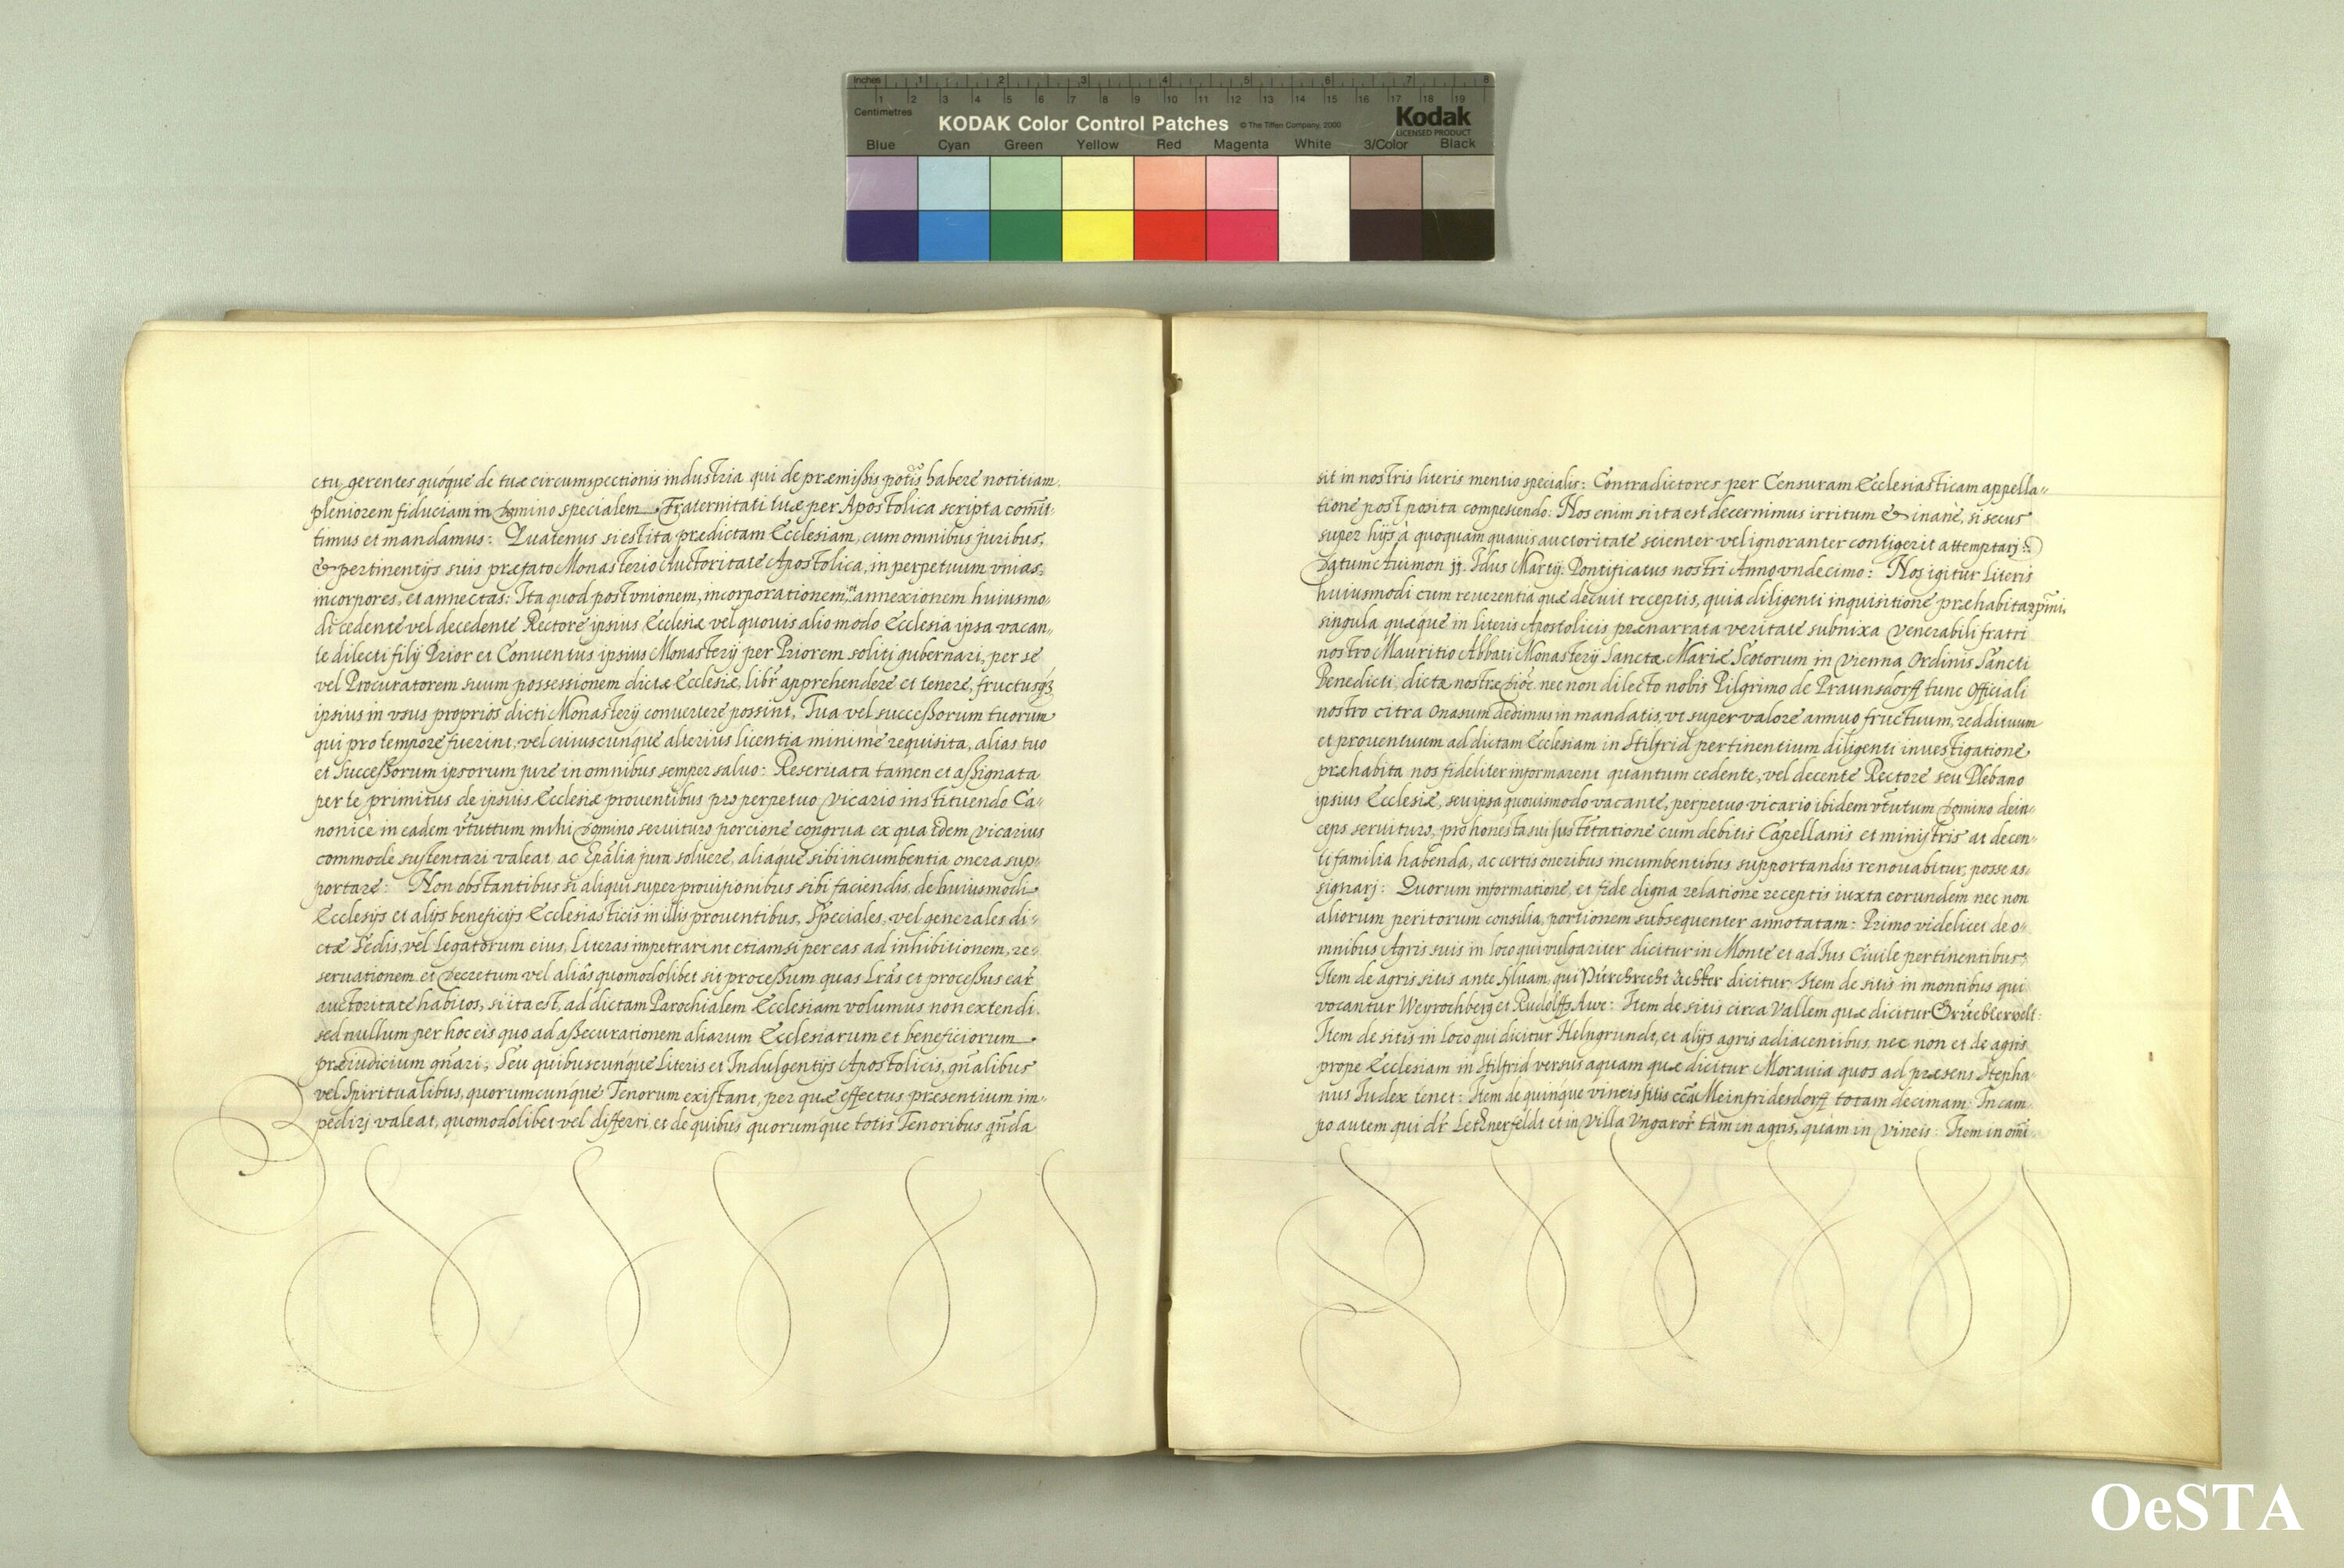 Inches 1 2 3 4 5 6 7 8
1 2 3 4 5 6 7 8 9 10 11 12 13 14 15 16 17 18 19
Centimetres
KODAK Color Control Patches © The Tiffen Company, 2000 Kodak
LICENSED PRODUCT
Blue Cyan Green Yellow Red Magenta White 3/Color Black
ctu gerentes quóque de tuæ circumspectionis industria qui de præmißis habere notitiam
pleniorem fiduciam in Domino specialem. Fraternitati tuæ per Apostolica scripta comit-
timus et mandamus: Quatenus si est ita prædictam Ecclesiam, cum omnibus juribus,
& pertinentijs suis præfato Monasterio Auctoritate Apostolica, in perpetuum vnias,
incorpores, et annectas: Ita quod post vnionem, incorporationem, et annexionem huiusmo-
di cedente vel decedente Rectore ipsius Ecclesiæ vel quouis alio modo Ecclesia ipsa vacan-
te dilecti filij Prior et Conuentus ipsius Monasterij per Priorem soliti gubernari, per se
vel Procuratorem suum possessionem dictæ Ecclesiæ, libr̃ apprehendere et tenere, fructusq3
ipsius in vsus proprios dicti Monasterij conuertere possint, Tua vel succeßorum tuorum
qui pro tempore fuerint, vel cuiuscunque alterius licentia minimè requisita, alias tuo
et Succeßorum ipsorum jure in omnibus semper saluo: Reseruata tamen et aßignata
per te primitus de ipsius Ecclesiæ prouentibus pro perpetuo Vicario instituendo Ca-
nonicè in eadem mihi Domino seruituro porcione congrua ex qua idem Vicarius
commodè sustentari valeat, ac Epãlia jura soluere, aliaque sibi incumbentia onera sup-
portare: Non obstantibus si aliqui super prouisionibus sibi faciendis, de huiusmodi
Ecclesijs et alijs beneficijs Ecclesiasticis in illis prouentibus, Speciales, vel generales di-
ctæ Sedis, vel Legatorum eius, Literas impetrarint etiamsi per eas ad inhibitionem, re-
seruationem et Decretum vel aliàs quomodolibet sit proceßum quas Lrãs et proceßus ear̃
auctoritate habitos, si ita est, ad dictam Parochialem Ecclesiam volumus non extendi,
sed nullum per hoc eis quo ad aßecurationem aliarum Ecclesiarum et beneficiorum
præiudicium gñari; Seu quibuscunque Literis et Indulgentijs Apostolicis, gñalibus
vel Spiritualibus, quorumcunque Tenorum existant, per quæ effectus præsentium im-
pedirj valeat, quomodolibet vel differri, et de quibus quorumque totis Tenoribus
sit in nostris literis mentio specialis: Contradictores per Censuram Ecclesiasticam appella-
tione postposita compescendo: Nos enim si ita est decernimus irritum & inane, si secus
super hijs à quoquam quauis auctoritate scienter vel ignoranter contigerit attemptarj:
Datum Auinion ij. Idus Martij: Pontificatus nostri Anno vndecimo: Nos igitur Literis
huiusmodi cum reuerentia quæ decuit receptis, quia diligenti inquisitione præhabita
singula quæque in literis Apostolicis prænarrata veritate subnixa Venerabili fratri
nostro Mauritio Abbati Monasterij Sanctæ Mariæ Scotorum in Vienna Ordinis Sancti
Benedicti, dictæ nostræ nec non dilecto nobis Pilgrimo de Praunsdorff tunc Officiali
nostro citra Onasum Dedimus in mandatis, vt super valore annuo fructuum, reddituum
et prouentuum ad dictam Ecclesiam in Stilfrid pertinentium diligenti inuestigatione
præhabita nos fideliter informarent quantum cedente, vel decente Rectore seu Plebano
ipsius Ecclesiæ, seu ipsa quouismodo vacante, perpetuo vicario ibidem Domino dein-
ceps seruituro, pro honesta sui sustẽtatione cum debitis Capellanis et ministris ac decen-
ti familia habenda, ac certis oneribus incumbentibus supportandis renouabitur, posse as-
signarj: Quorum informatione, et fide digna relatione receptis iuxta eorundem nec non
aliorum peritorum consilia, portionem subsequenter annotatam: Primo videlicet de o-
mnibus Agris suis in loco qui vulgariter dicitur in Monte et ad Jus Ciuile pertinentibus:
Item de agris sitis ante Syluam, qui Púrckrecht Ackher dicitur, Item de sitis in montibus qui
vocantur Weyrochberg et Rudolffs Awe: Item de sitis circa Vallem quæ dicitur Grüeblervelt:
Item de sitis in loco qui dicitur Helngrundt, et alijs agris adiacentibus, nec non et de agris
prope Ecclesiam in Stilfrid versus aquam quæ dicitur Morauia quos ad præsens Stepha-
nus Judex tenet: Item de quinque vineis sitis Meinfridesdorff totam decimam: In cam
po autem qui dr̃ Letznerfeldt et in Villa Vngaror̃ tàm in agris, quàm in Vineis: Item in om̃i
OeSTA